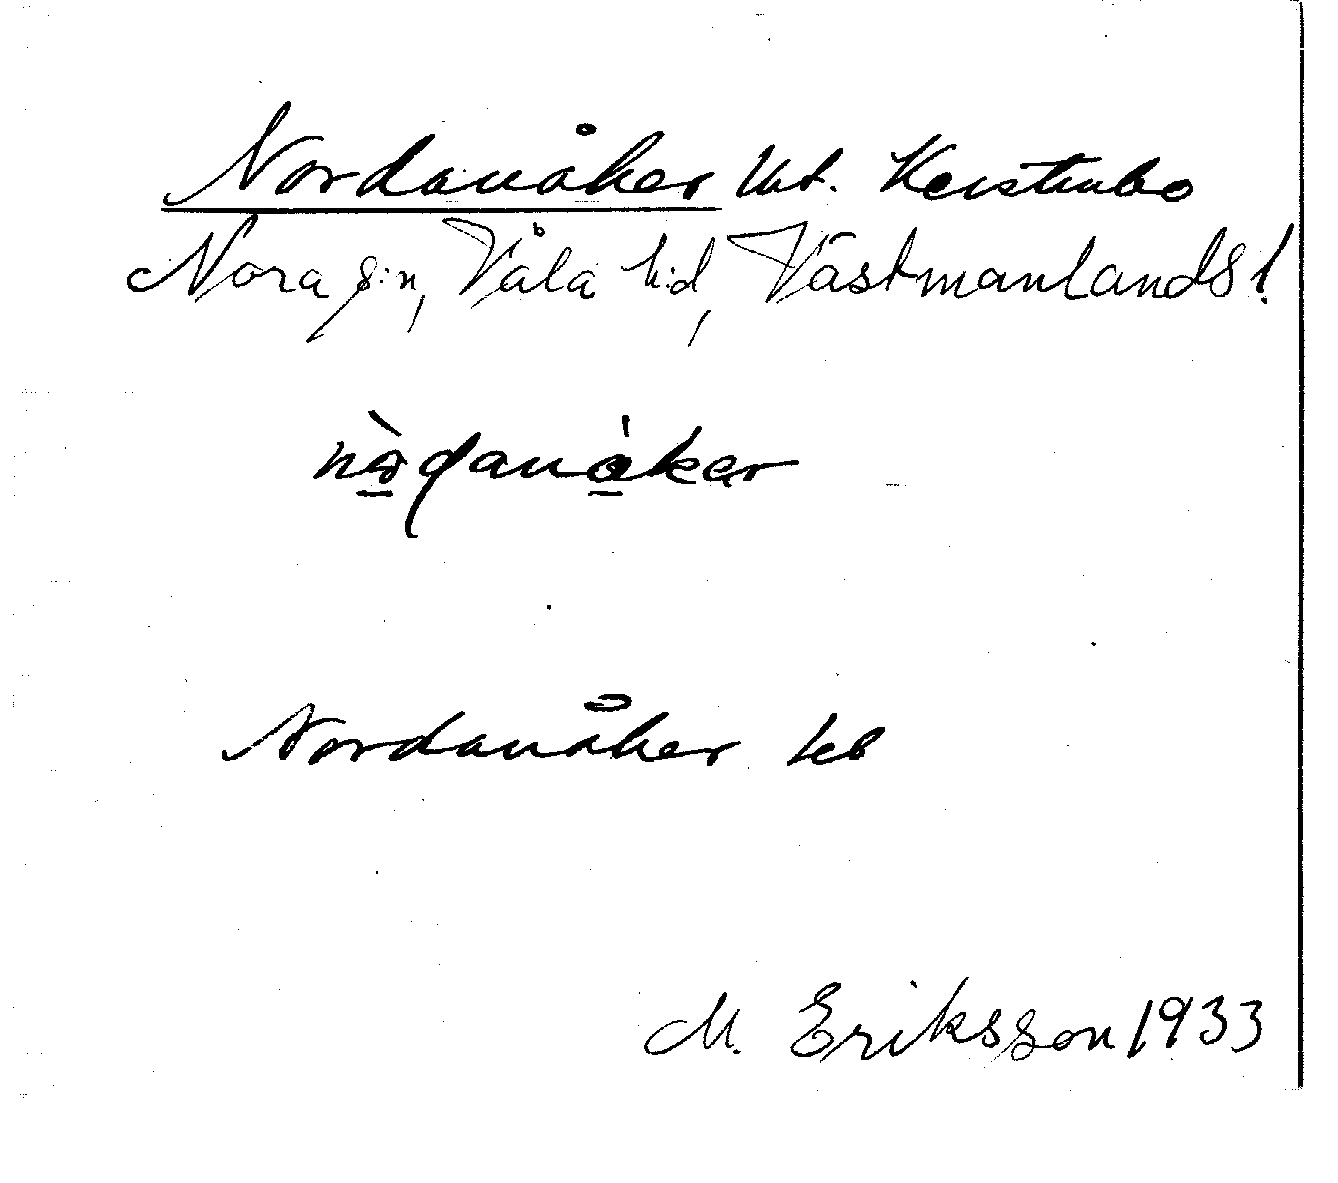 Nordanåker Unt. Kerstinbo
Nora s:n, Våla h:d, Västmanlands l.
Nordanåker
M. Eriksson 1933